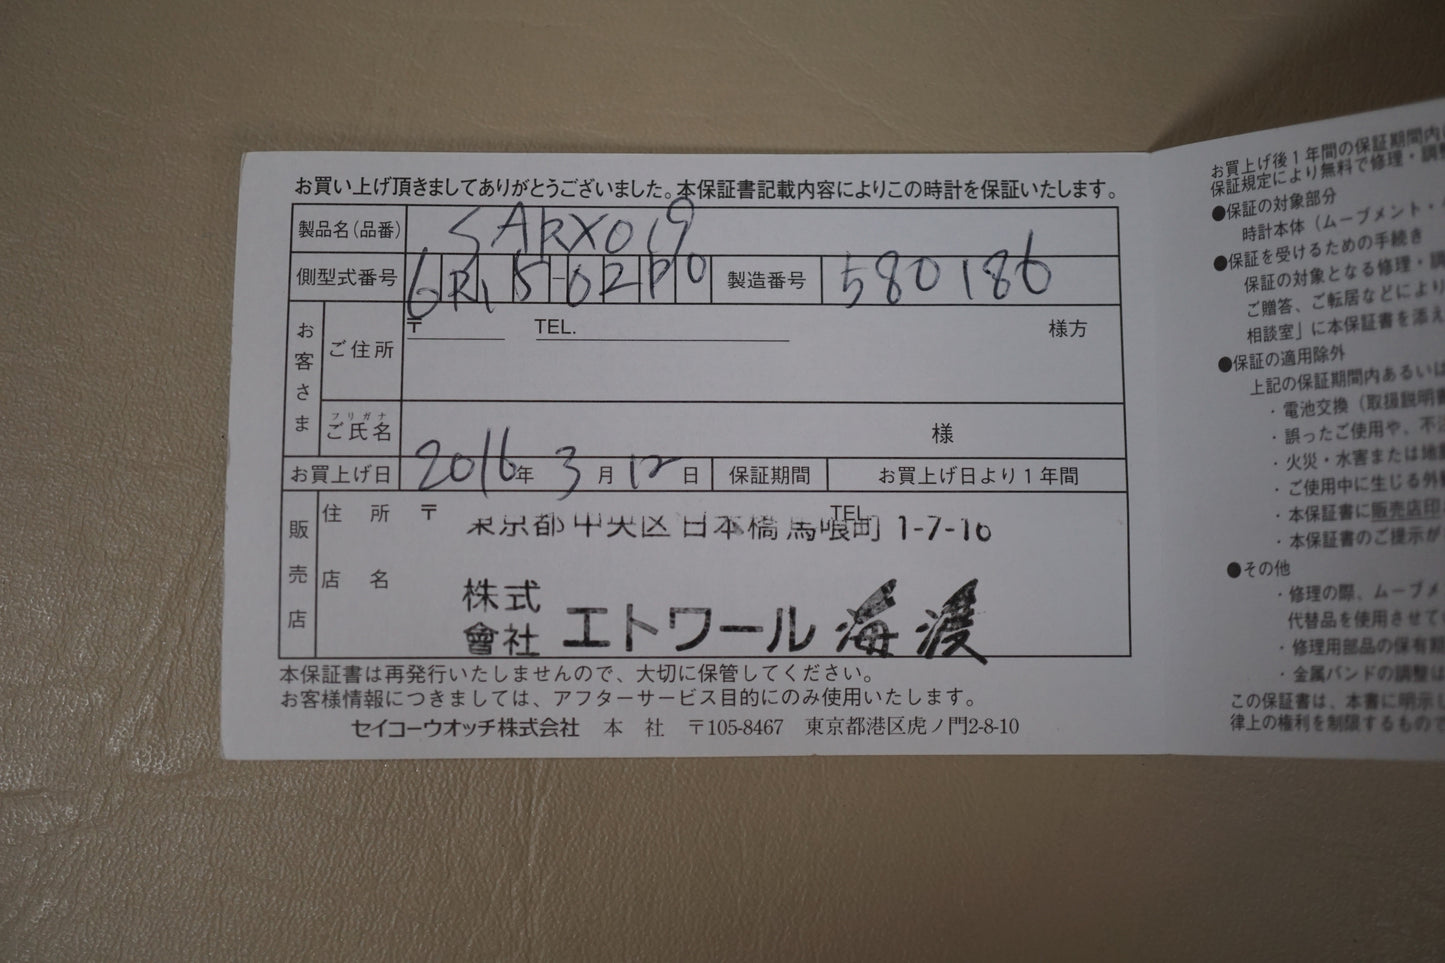 お買い上げ頂きましてありがとうございました。本保証書記載内容によりこの時計を保証いたします。
製品名(品番) SARX019
側型式番号 6R15-02P0 製造番号 580186
お客さま
ご住所 〒 TEL. 様方
フリガナ
ご氏名 様
お買上げ日 2016年 3月 12日 保証期間 お買上げ日より1年間
販売店
住所 〒 TEL.
東京都中央区日本橋馬喰町 1-7-16
店名
株式會社 エトワール海渡
本保証書は再発行いたしませんので、大切に保管してください。
お客様情報につきましては、アフターサービス目的にのみ使用いたします。
セイコーウオッチ株式会社 本 社 〒105-8467 東京都港区虎ノ門2-8-10
お買上げ後1年間の保証期間内
保証規定により無料で修理・調
●保証の対象部分
時計本体(ムーブメント・
●保証を受けるための手続き
保証の対象となる修理・調
ご贈答、ご転居などにより
相談室」に本保証書を添え
●保証の適用除外
上記の保証期間内あるいは
・電池交換(取扱説明書
・誤ったご使用や、不
・火災・水害または地
・ご使用中に生じる外
・本保証書に販売店印
・本保証書のご提示が
●その他
・修理の際、ムーブメ
代替品を使用させて
・修理用部品の保有期
・金属バンドの調整は
この保証書は、本書に明示
律上の権利を制限するもので